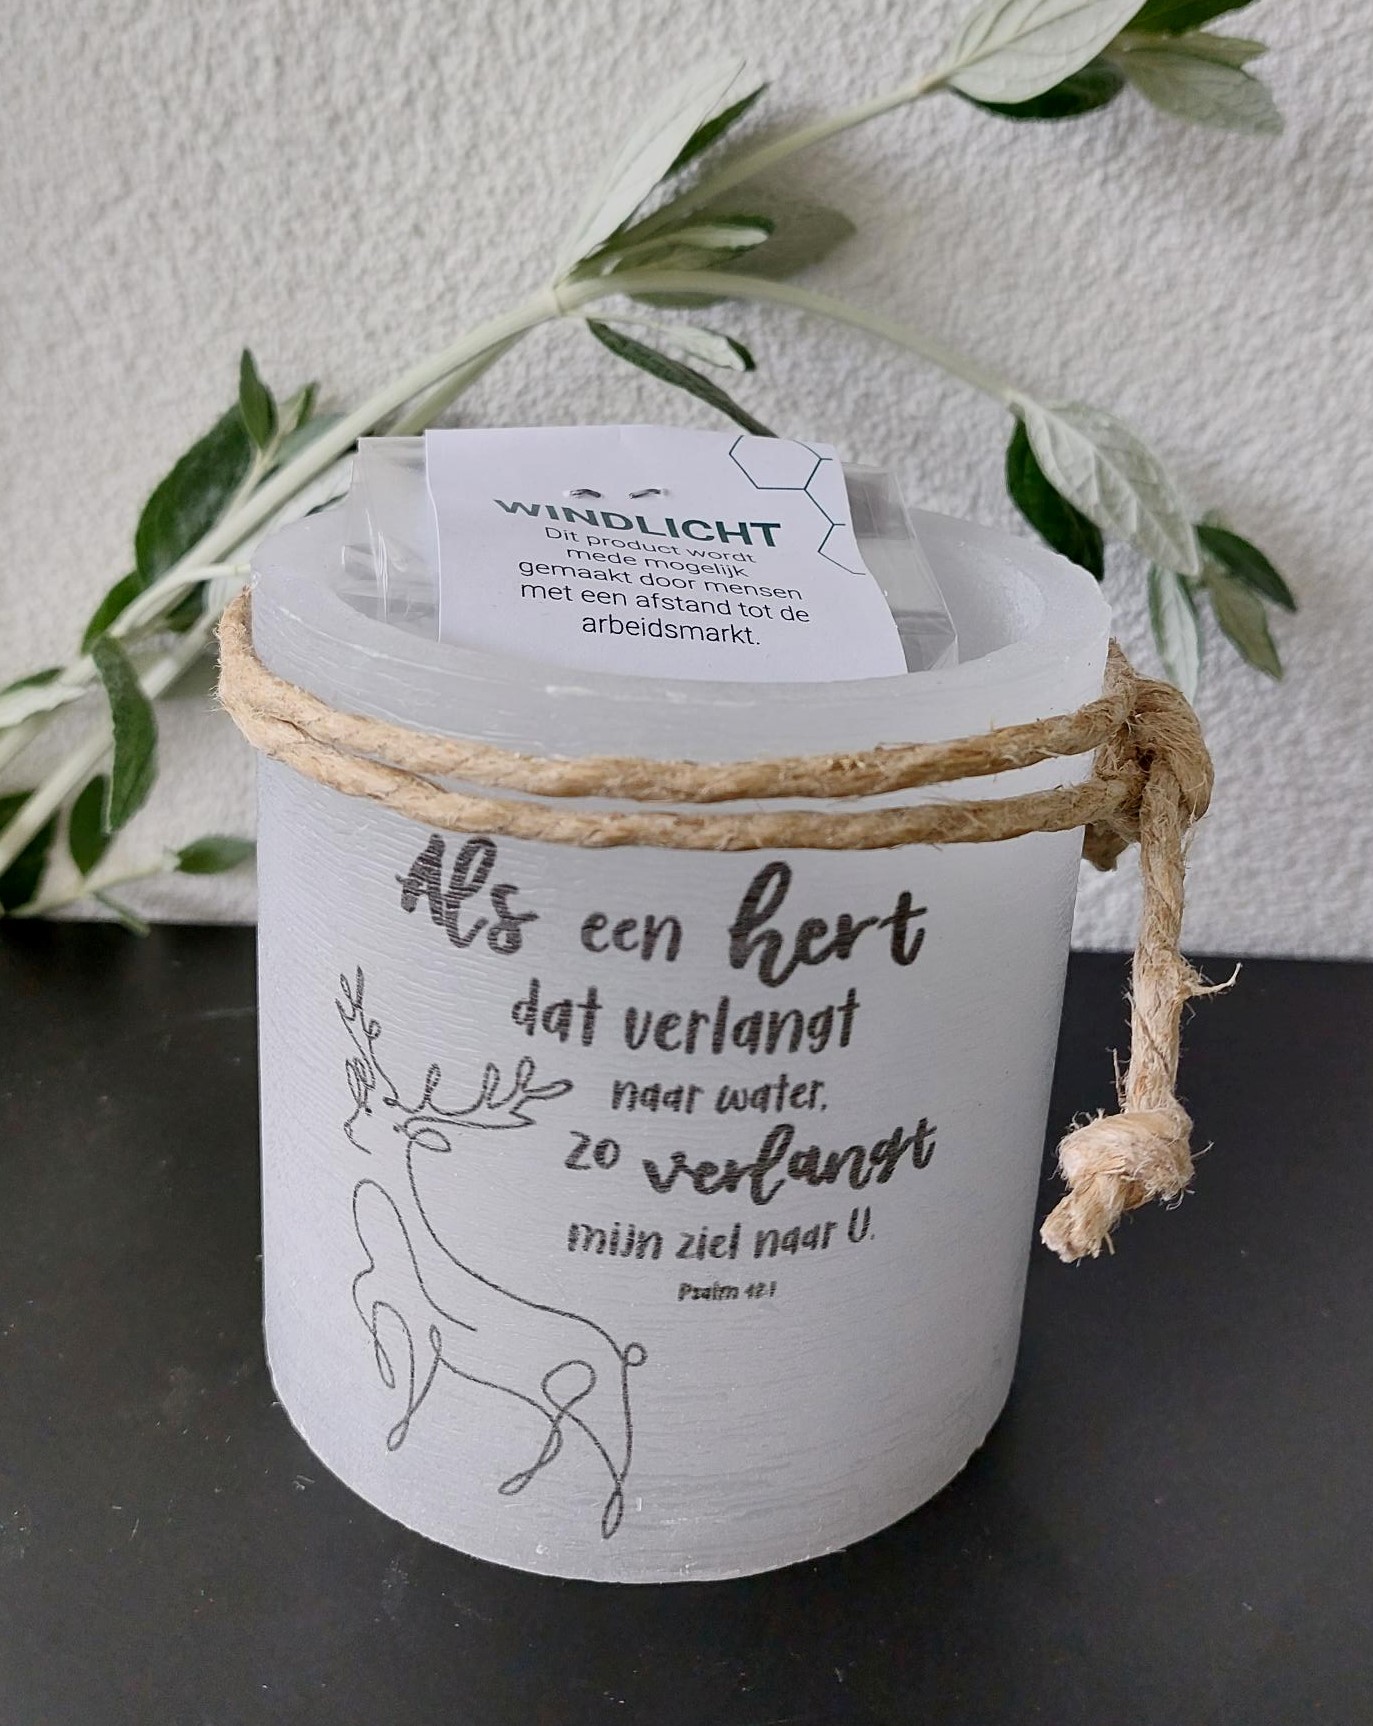 WINDLICHT
Dit product wordt
mede mogelijk
gemaakt door mensen
met een afstand tot de
arbeidsmarkt.
Als een hert
dat verlangt
naar water,
zo verlangt
mijn ziel naar U.
Psalm 42:1